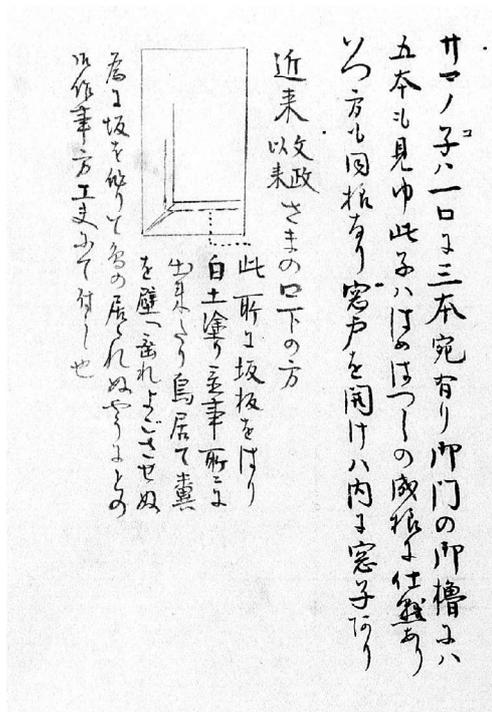 サマノ子ハ一口に三本宛有り御門の御櫓にハ
コ
五本も見ゆ此子ハはめはつしの成様に仕懸あり
いつ方も同様なり窓戸を開けハ内に窓子あり
近来文政以来さまの口下の方
此所に坂板をはり
白土塗り事所に
出来たり鳥居て糞
を壁へ垂れよごさせぬ
為に坂を作りて鳥の居られぬやうにとの
御作事方工夫にて付し也